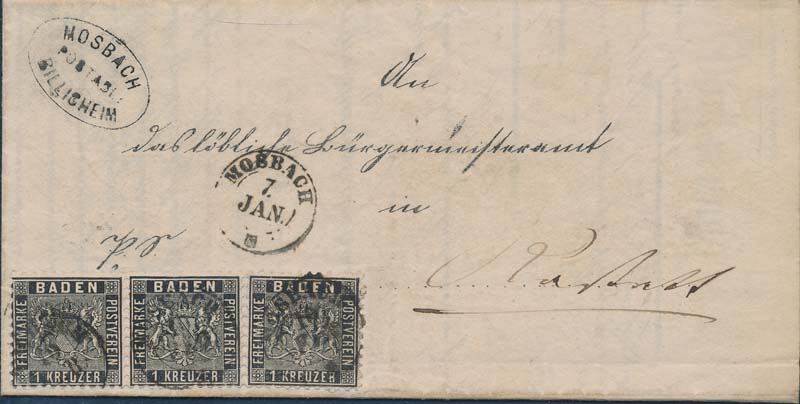 MOSBACH
POSTABL.
BILLIGHEIM
An
das löbliche Bürgermeisteramt
MOSBACH
7.
JAN.
in
Rastatt
BADEN
FREIMARKE
POSTVEREIN
1 KREUZER
BADEN
FREIMARKE
POSTVEREIN
1 KREUZER
BADEN
FREIMARKE
POSTVEREIN
1 KREUZER